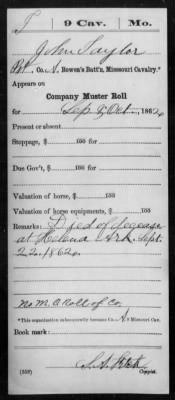 T | 9 Cav. | Mo.
John Taylor
Pvt., Co. A, Bowen's Batt'n, Missouri Cavalry.*
Appears on
Company Muster Roll
for Sep & Oct, 1862.
Present or absent
Stoppage, $ 100 for
Due Gov't, $ 100 for
Valuation of horse, $ 100
Valuation of horse equipments, $ 100
Remarks: Died of disease
at Helena Ark. Sept.
22. 1862.
no M. O. roll of Co.
*This organization subsequently became Co. A, 9 Missouri Cav.
Book mark:
(359)
Copyist.